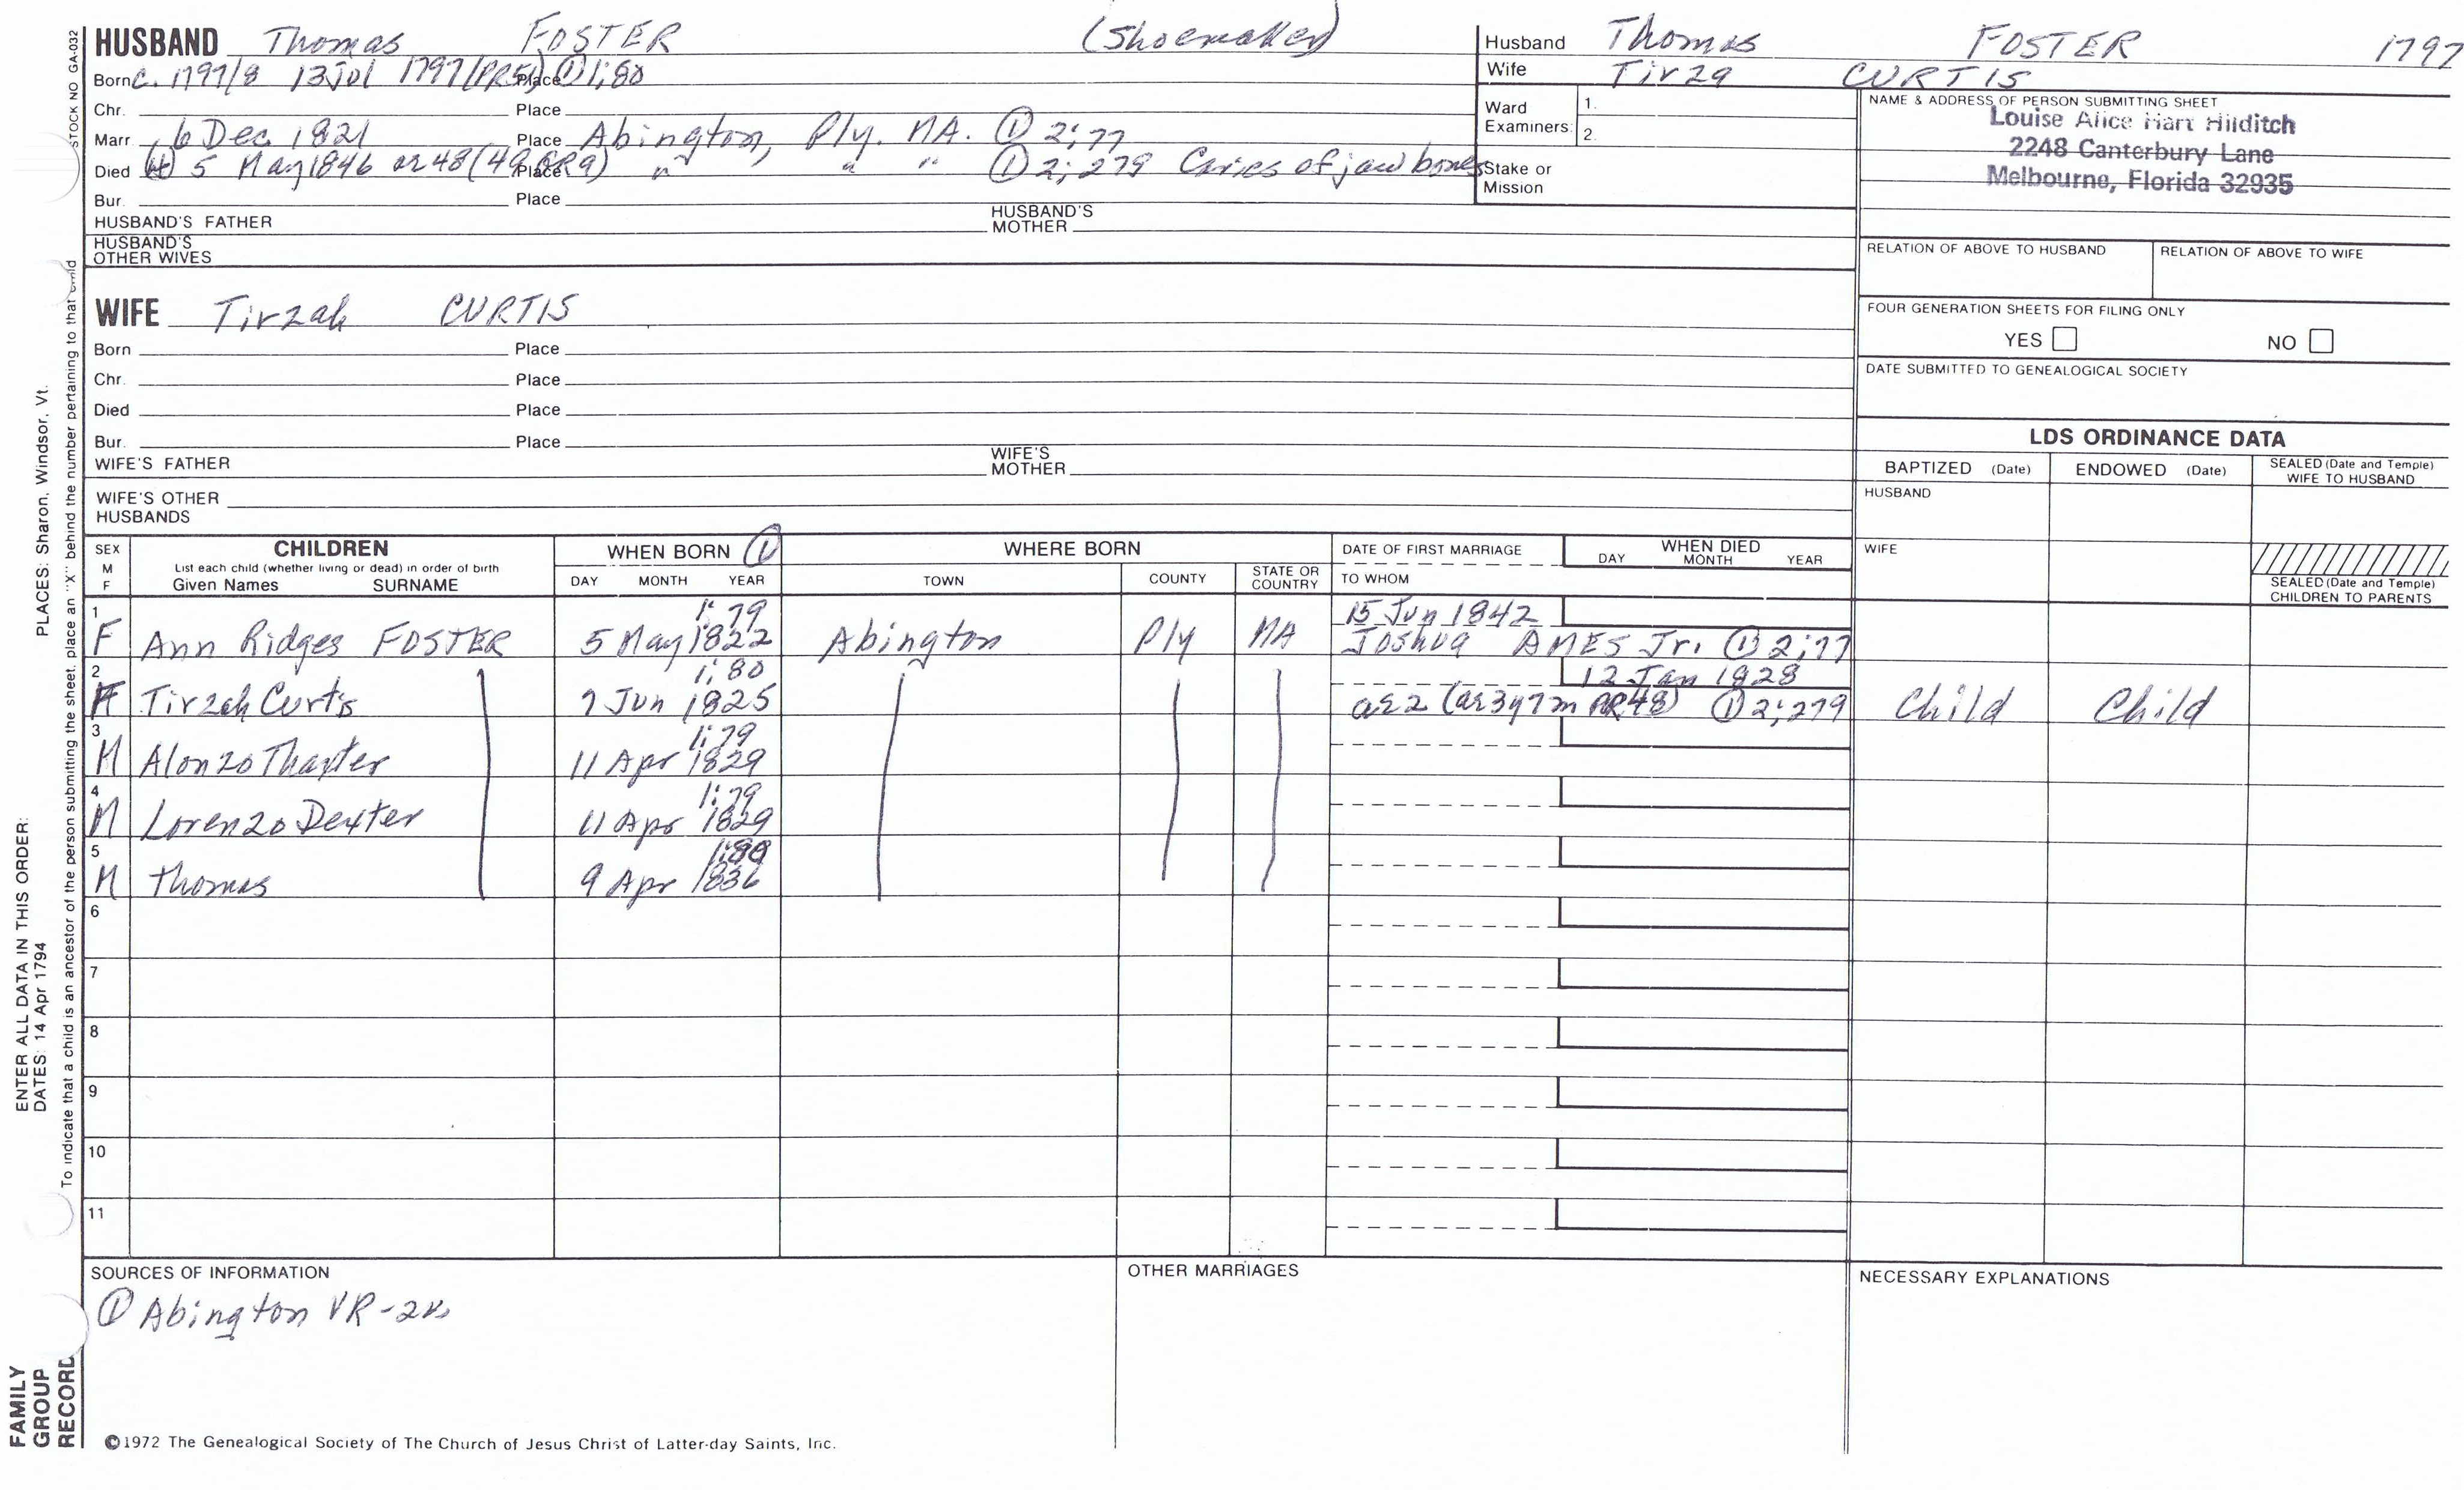 HUSBAND Thomas FOSTER (Shoemaker)
Born c. 1797/8 13 Jul 1797 (PR51) Place ① 1;80
Chr. Place
Marr. 6 Dec. 1821 Place Abington, Ply. MA. ① 2;77
Died 5 May 1846 or 48 (49 GR9) Place " " " ① 2;279 Caries of jaw bones
Bur. Place
HUSBAND'S FATHER HUSBAND'S MOTHER
HUSBAND'S OTHER WIVES
Husband Thomas FOSTER 1797
Wife Tirza CURTIS
Ward Examiners: 1.
2.
Stake or Mission
NAME & ADDRESS OF PERSON SUBMITTING SHEET
Louise Alice Hart Hilditch
2248 Canterbury Lane
Melbourne, Florida 32935
RELATION OF ABOVE TO HUSBAND RELATION OF ABOVE TO WIFE
FOUR GENERATION SHEETS FOR FILING ONLY
YES NO
DATE SUBMITTED TO GENEALOGICAL SOCIETY
WIFE Tirzah CURTIS
Born Place
Chr. Place
Died Place
Bur. Place
WIFE'S FATHER WIFE'S MOTHER
WIFE'S OTHER HUSBANDS
LDS ORDINANCE DATA
BAPTIZED (Date) ENDOWED (Date) SEALED (Date and Temple) WIFE TO HUSBAND
HUSBAND
WIFE
SEALED (Date and Temple) CHILDREN TO PARENTS
SEX M F CHILDREN WHEN BORN ① WHERE BORN DATE OF FIRST MARRIAGE WHEN DIED
List each child (whether living or dead) in order of birth
Given Names SURNAME DAY MONTH YEAR TOWN COUNTY STATE OR COUNTRY TO WHOM DAY MONTH YEAR
1 1;79 15 Jun 1842
F Ann Ridges FOSTER 5 May 1822 Abington Ply MA Joshua AMES Jr. ① 2;77
2 1;80 12 Jan 1828
F Tirzah Curtis 7 Jun 1825 ae 2 (ae 3y 7m PR48) ① 2;279 Child Child
3 1;79
M Alonzo Thaxter 11 Apr 1829
4 1;79
M Lorenzo Dexter 11 Apr 1829
5 1;80
M Thomas 9 Apr 1836
6
7
8
9
10
11
SOURCES OF INFORMATION OTHER MARRIAGES NECESSARY EXPLANATIONS
① Abington VR-2v.
©1972 The Genealogical Society of The Church of Jesus Christ of Latter-day Saints, Inc.
STOCK NO GA-032
To indicate that a child is an ancestor of the person submitting the sheet, place an "X" behind the number pertaining to that child
PLACES: Sharon, Windsor, Vt.
ENTER ALL DATA IN THIS ORDER:
DATES: 14 Apr 1794
FAMILY
GROUP
RECORD